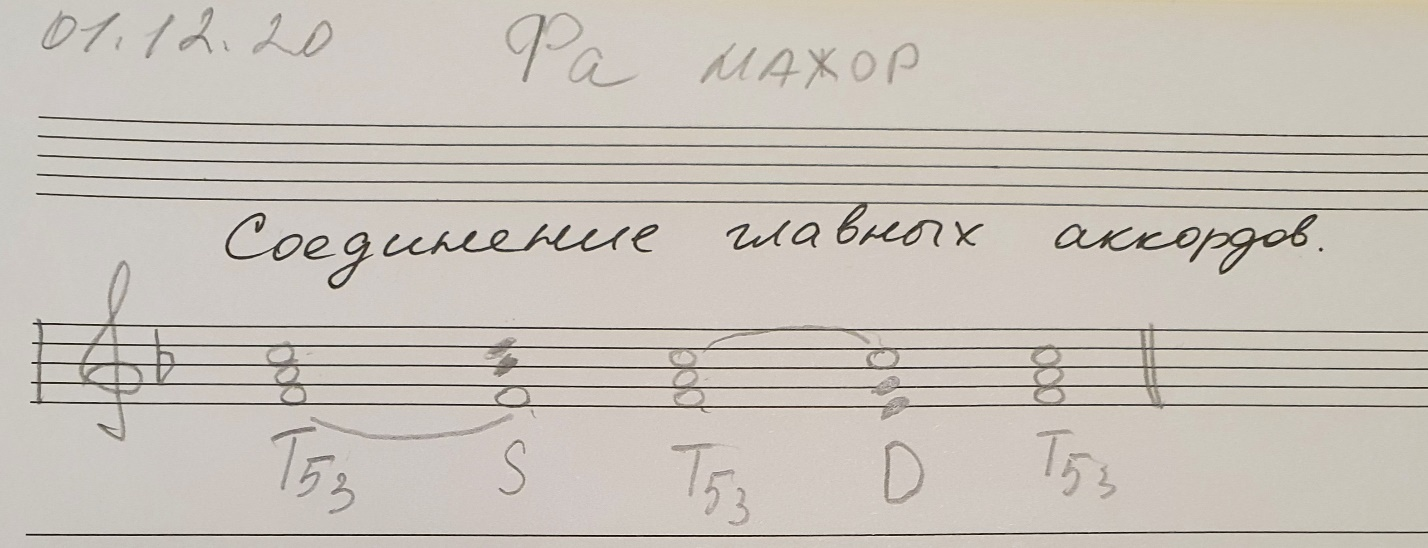 01.12.20 Фа мажор
Соединение главных аккордов.
T53 S T53 D T53